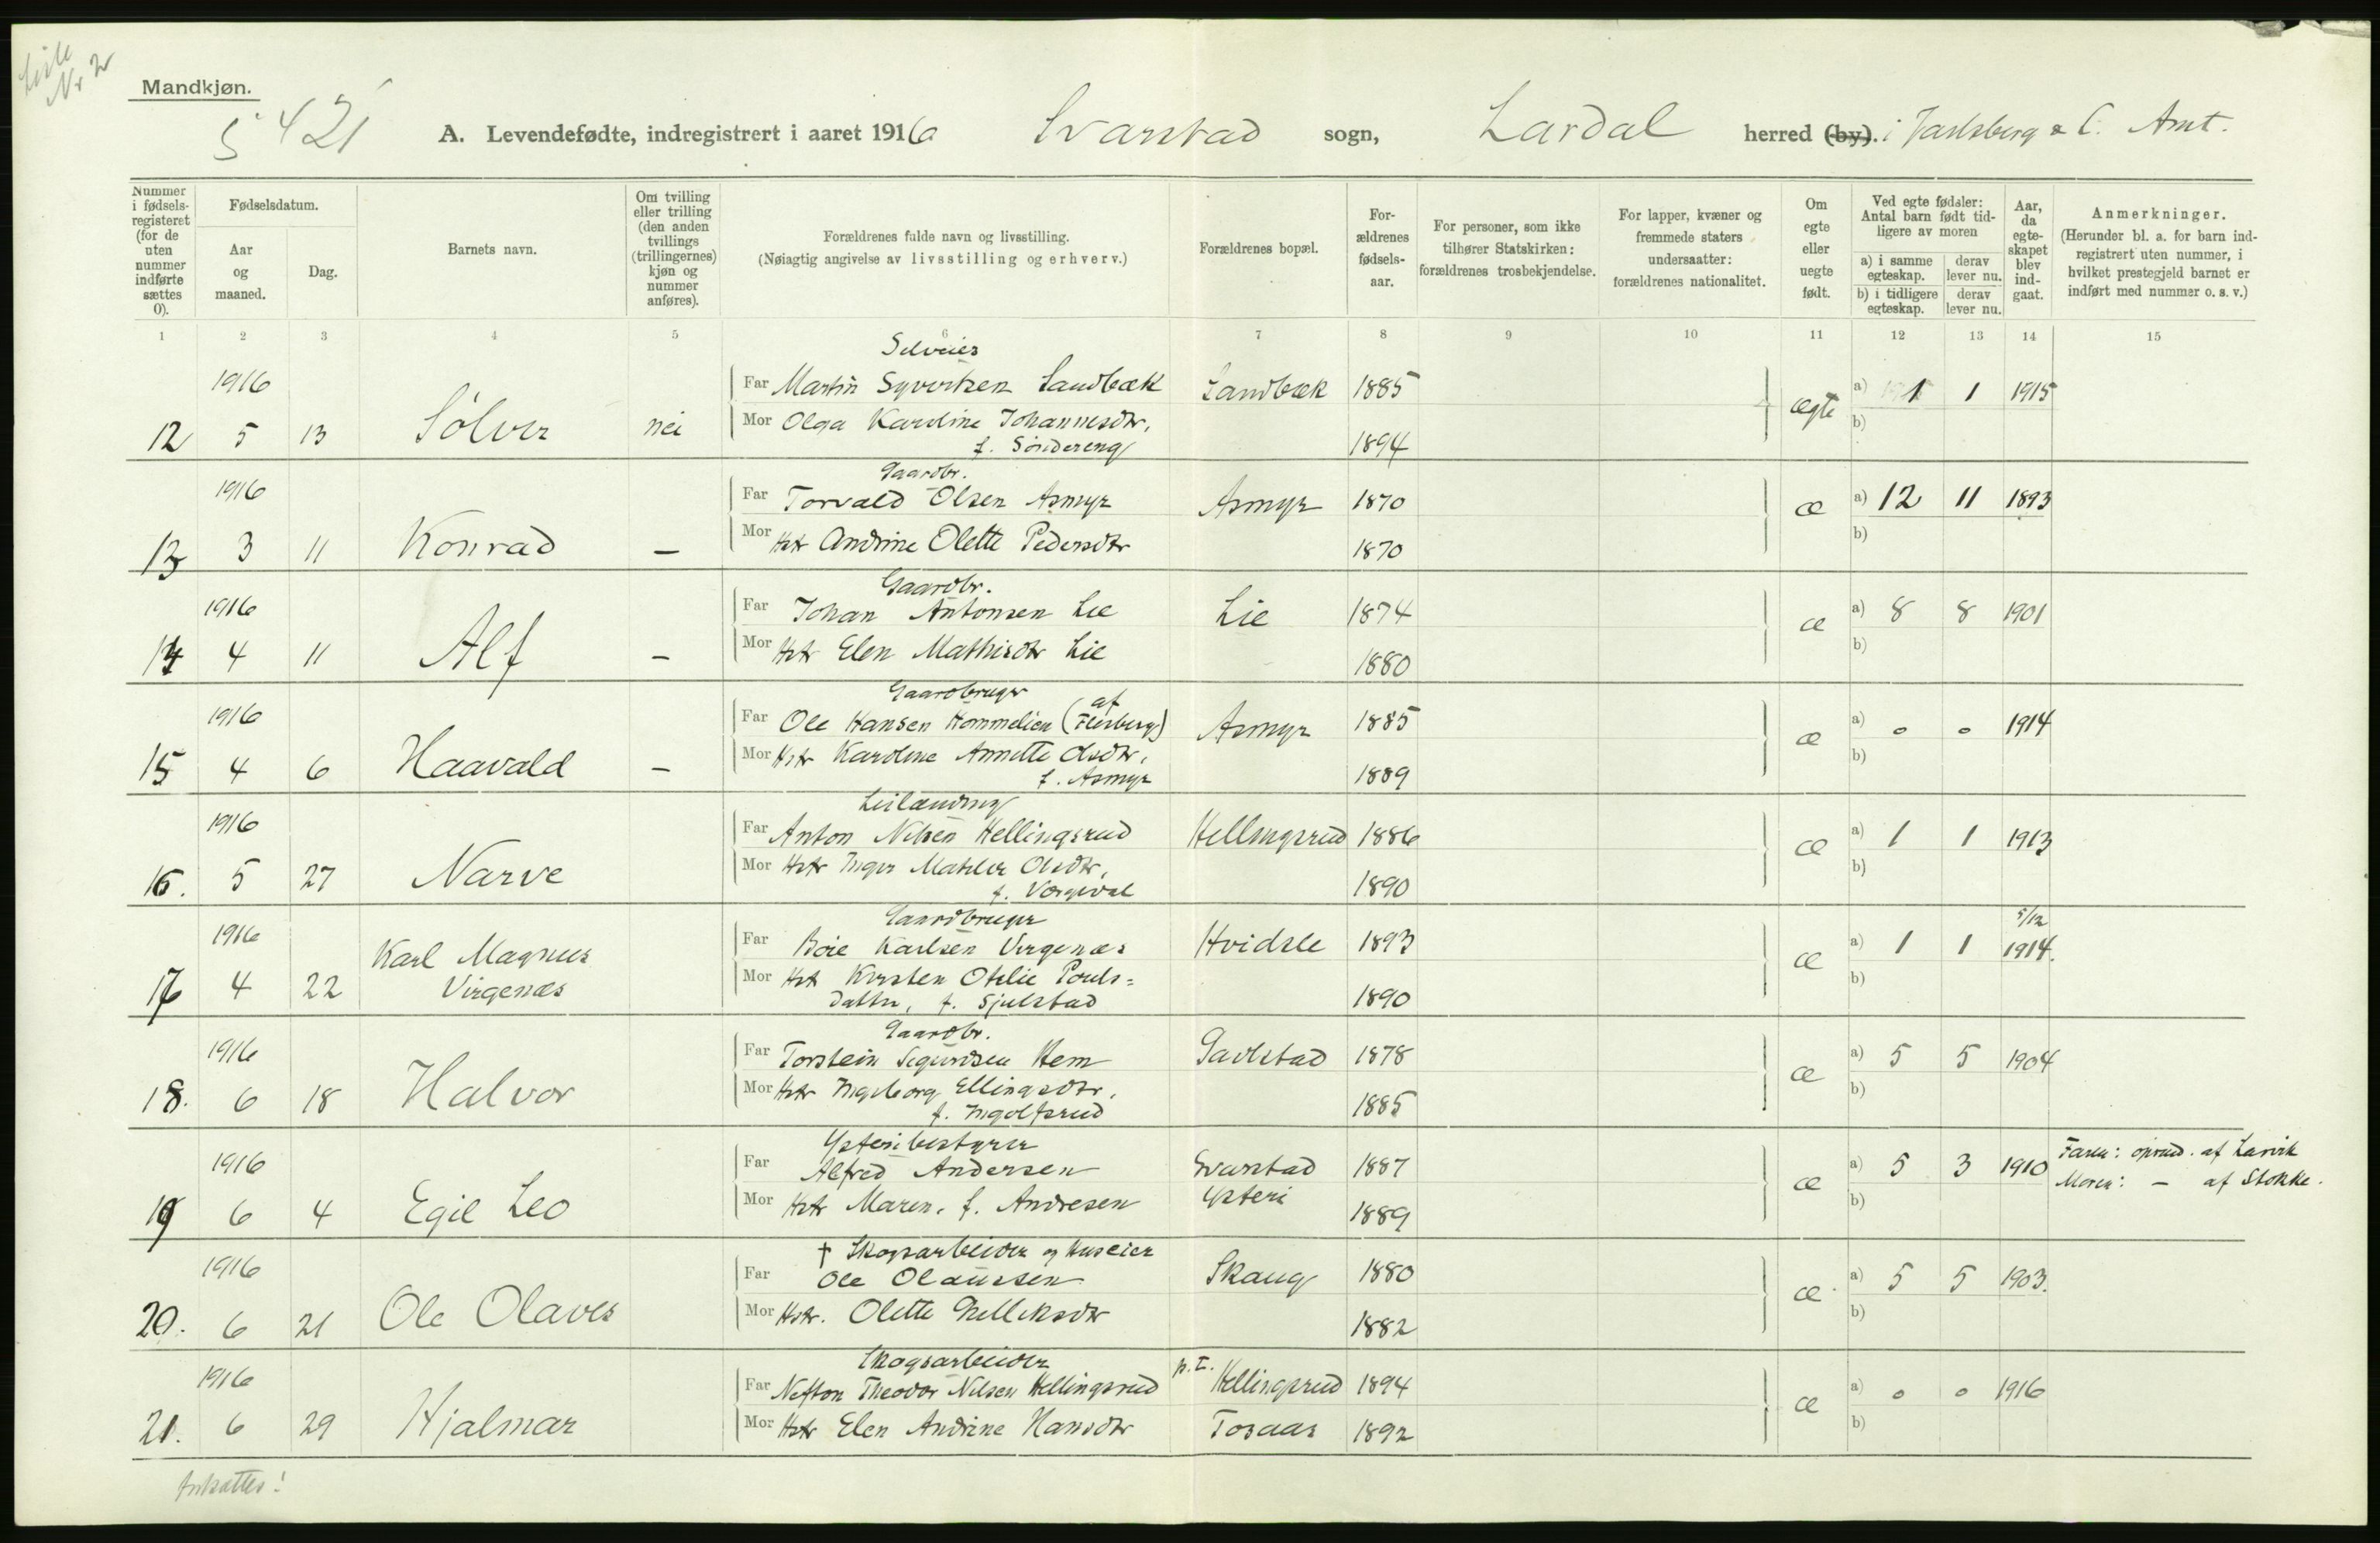 Liste
Nr 2
Mandkjøn.
421
A. Levendefødte, indregistrert i aaret 1916 Svarstad sogn, Lardal herred (by). i Jarlsberg & L. Amt.
Nummer i fødselsregisteret (for de uten nummer indførte sættes 0).
Fødselsdatum.
Aar og maaned.
Dag.
Barnets navn.
Om tvilling eller trilling (den anden tvillings (trillingernes) kjøn og nummer anføres).
Forældrenes fulde navn og livsstilling.
(Nøiagtig angivelse av livsstilling og erhverv.)
Forældrenes bopæl.
Forældrenes fødselsaar.
For personer, som ikke tilhører Statskirken: forældrenes trosbekjendelse.
For lapper, kvæner og fremmede staters undersaatter: forældrenes nationalitet.
Om egte eller uegte født.
Ved egte fødsler: Antal barn født tidligere av moren
a) i samme egteskap. derav lever nu.
b) i tidligere egteskap. derav lever nu.
Aar, da egteskapet blev indgaat.
Anmerkninger.
(Herunder bl. a. for barn indregistrert uten nummer, i hvilket prestegjeld barnet er indført med nummer o. s. v.)
1 2 3 4 5 6 7 8 9 10 11 12 13 14 15
Selveier
1916 Far Martin Syvertsen Sandbæk Sandbæk 1885 a) 1 1 1915
12 5 13 Sølver nei Mor Olga Karoline Johannesdtr, ægte b)
f. Søndereng 1894
Gaardbr.
1916 Far Torvald Olsen Asmyr Asmyr 1870 æ a) 12 11 1893
13 3 11 Konrad — Mor Hstr Andrine Olette Pedersdtr 1870 b)
Gaardbr.
1916 Far Johan Antonsen Lie Lie 1874 æ a) 8 8 1901
14 4 11 Alf — Mor Hstr Elen Mathisdtr Lie 1880 b)
Gaardbruger
1916 Far Ole Hansen Kommelien (af Flesberg) Asmyr 1885 æ a) 0 0 1914
15 4 6 Haavald — Mor Hstr Karoline Annette Olsdtr, b)
f. Asmyr 1889
Leilænding
1916 Far Anton Nilsen Hellingsrud Hellingsrud 1886 æ a) 1 1 1913
16. 5 27 Narve Mor Hstr Inger Mathea Olsdtr, b)
f. 1890
Gaardbruger 5/12
1916 Karl Magnus Far Boie Karlsen Virgenæs Hvidsle 1893 æ a) 1 1 1914.
17 4 22 Virgenæs Mor Hstr Kirsten Otilie Pouls=
datter, f. Sjulstad 1890 b)
Gaardbr.
1916 Far Torstein Sigurdsen Hem Gavlstad 1878 æ a) 5 5 1904
18. 6 18 Halvor Mor Hstr Ingeborg Ellingsdtr, b)
f. Ingolfsrud 1885
Ysteribestyrer
1916 Far Alfred Andersen Svarstad 1887 æ a) 5 3 1910 Faren: oprind. af Larvik
19 6 4 Egil Leo Mor Hstr Maren, f. Andresen Ysteri 1889 b) Moren: — af Stokke.
† Skogsarbeider og huseier
1916 Far Ole Olaussen Skaug 1880 æ a) 5 5 1903.
20. 6 21 Ole Olaves Mor Hstr. Olette 1882 b)
Skogsarbeider
1916 Far Nefton Theodor Nilsen Hellingsrud p.t. Hellingsrud 1894 æ a) 0 0 1916
21. 6 29 Hjalmar Mor Hstr Elen Andrine Hansdtr Tosaas 1892 b)